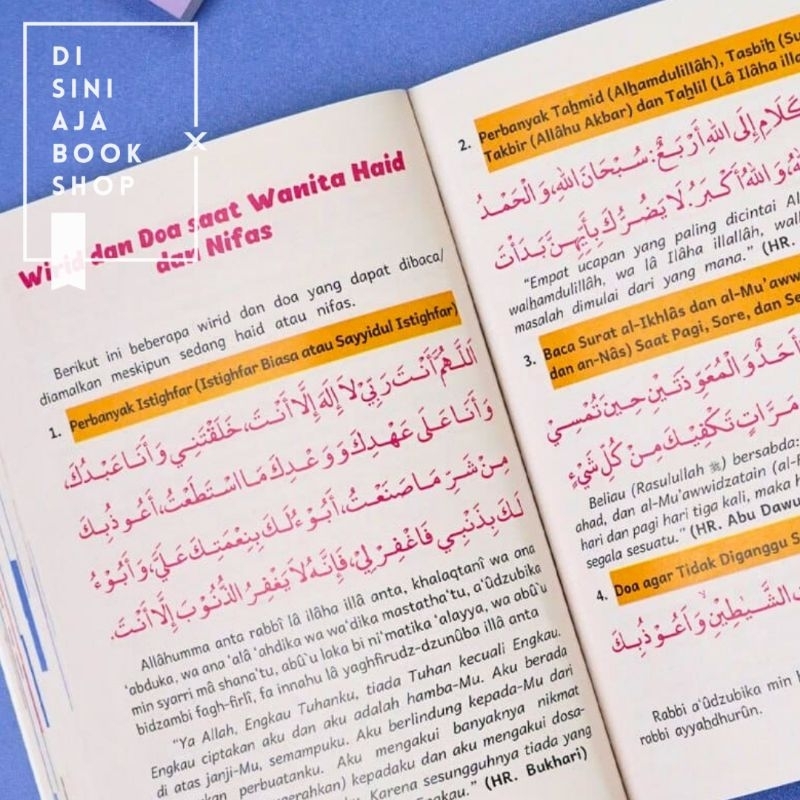 DI
SINI
AJA
BOOK
SHOP
X
Wirid dan Doa saat Wanita Haid
dan Nifas
Berikut ini beberapa wirid dan doa yang dapat dibaca/
diamalkan meskipun sedang haid atau nifas.
1. Perbanyak Istighfar (Istighfar Biasa atau Sayyidul Istighfar)
اَللّٰهُمَّ أَنْتَ رَبِّيْ لَا إِلٰهَ إِلَّا أَنْتَ، خَلَقْتَنِيْ وَ أَنَا عَبْدُكَ،
وَ أَنَا عَلَى عَهْدِكَ وَ وَعْدِكَ مَا اسْتَطَعْتُ، أَعُوْذُ بِكَ
مِنْ شَرِّ مَا صَنَعْتُ، أَبُوْءُ لَكَ بِنِعْمَتِكَ عَلَيَّ، وَ أَبُوْءُ
لَكَ بِذَنْبِيْ فَاغْفِرْ لِيْ، فَإِنَّهُ لَا يَغْفِرُ الذُّنُوْبَ إِلَّا أَنْتَ.
Allâhumma anta rabbî lâ ilâha illâ anta, khalaqtanî wa ana
'abduka, wa ana 'alâ 'ahdika wa wa'dika mastatha'tu, a'ûdzubika
min syarri mâ shana'tu, abû`u laka bi ni'matika 'alayya, wa abû`u
bidzambi fagh-firlî, fa innahu lâ yaghfirudz-dzunûba illâ anta
"Ya Allah, Engkau Tuhanku, tiada Tuhan kecuali Engkau.
Engkau ciptakan aku dan aku adalah hamba-Mu. Aku berada
di atas janji-Mu, semampuku. Aku berlindung kepada-Mu dari
perbuatanku. Aku mengakui banyaknya nikmat
kepadaku dan aku mengakui dosa-
Karena sesungguhnya tiada yang
(HR. Bukhari)
2. Perbanyak Taẖmid (Alẖamdulillâh), Tasbiẖ (Su
Takbir (Allâhu Akbar) dan Taẖlil (Lâ Ilâha illa
كَلَامِ إِلَى اللهِ أَرْبَعٌ: سُبْحَانَ اللهِ، وَ الْحَمْدُ
وَ اللهُ أَكْبَرُ. لَا يَضُرُّكَ بِأَيِّهِنَّ بَدَأْتَ
"Empat ucapan yang paling dicintai Al
walẖamdulillâh, wa lâ Ilâha illallâh, wall
masalah dimulai dari yang mana." (HR.
3. Baca Surat al-Ikhlâs dan al-Mu'aww
dan an-Nâs) Saat Pagi, Sore, dan Se
أَحَدٌ وَ الْمُعَوِّذَتَيْنِ حِيْنَ تُمْسِيْ
مَرَّاتٍ تَكْفِيْكَ مِنْ كُلِّ شَيْءٍ
Beliau (Rasulullah ﷺ) bersabda:
ahad, dan al-Mu'awwidzatain (al-F
hari dan pagi hari tiga kali, maka h
segala sesuatu." (HR. Abu Dawu
4. Doa agar Tidak Diganggu S
الشَّيٰطِيْنِ وَ أَعُوْذُ بِكَ
Rabbi a'ûdzubika min h
rabbi ayyahdhurûn.